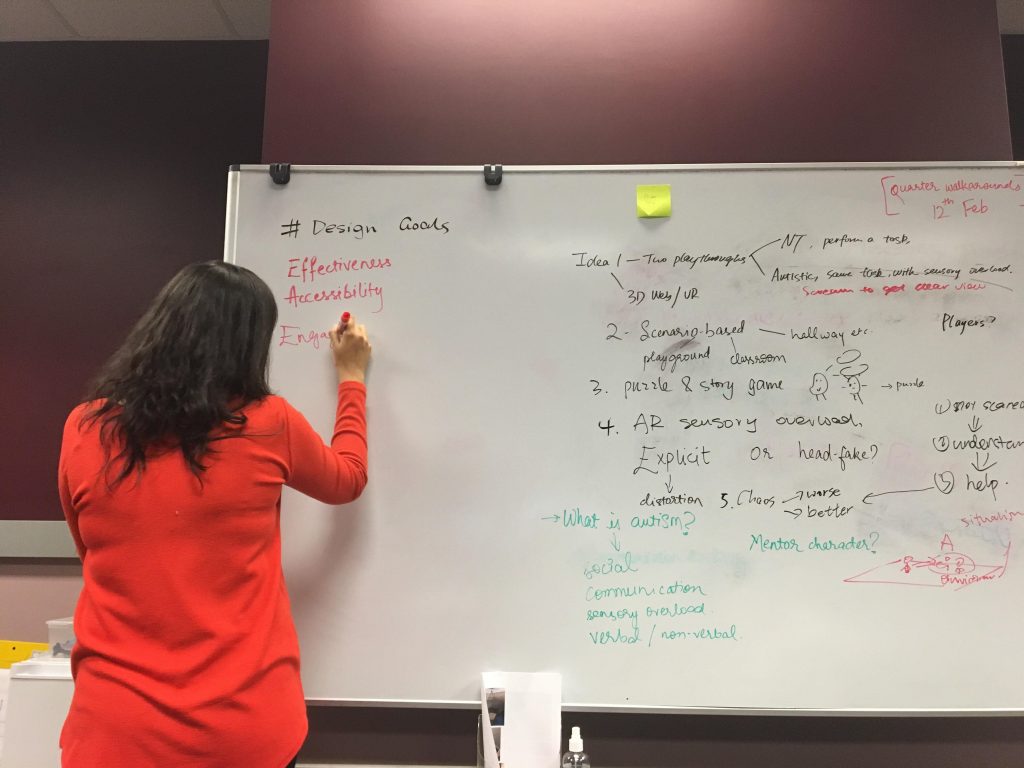 # Design Goals
Effectiveness
Accessibility
Enga
[Quarter walkarounds]
12th Feb
Idea 1 — Two playthroughs
NT, perform a task
Autistic, same task, with sensory overload.
to get clear view
3D Web/VR
Players?
2- Scenario-based — hallway etc.
playground classroom
3. puzzle & story game
→ puzzle
4. AR sensory overload.
Explicit or head-fake?
distortion
5. Chaos → worse
→ better
① Not scared
② understan
③ help.
→ What is autism?
social
communication
sensory overload.
verbal / non-verbal.
Mentor character?
situation
A